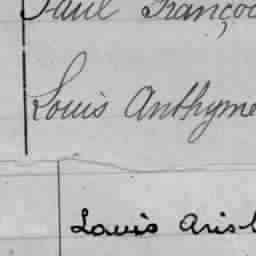 Paul Françoi
Louis Anthyme
Louis Arist